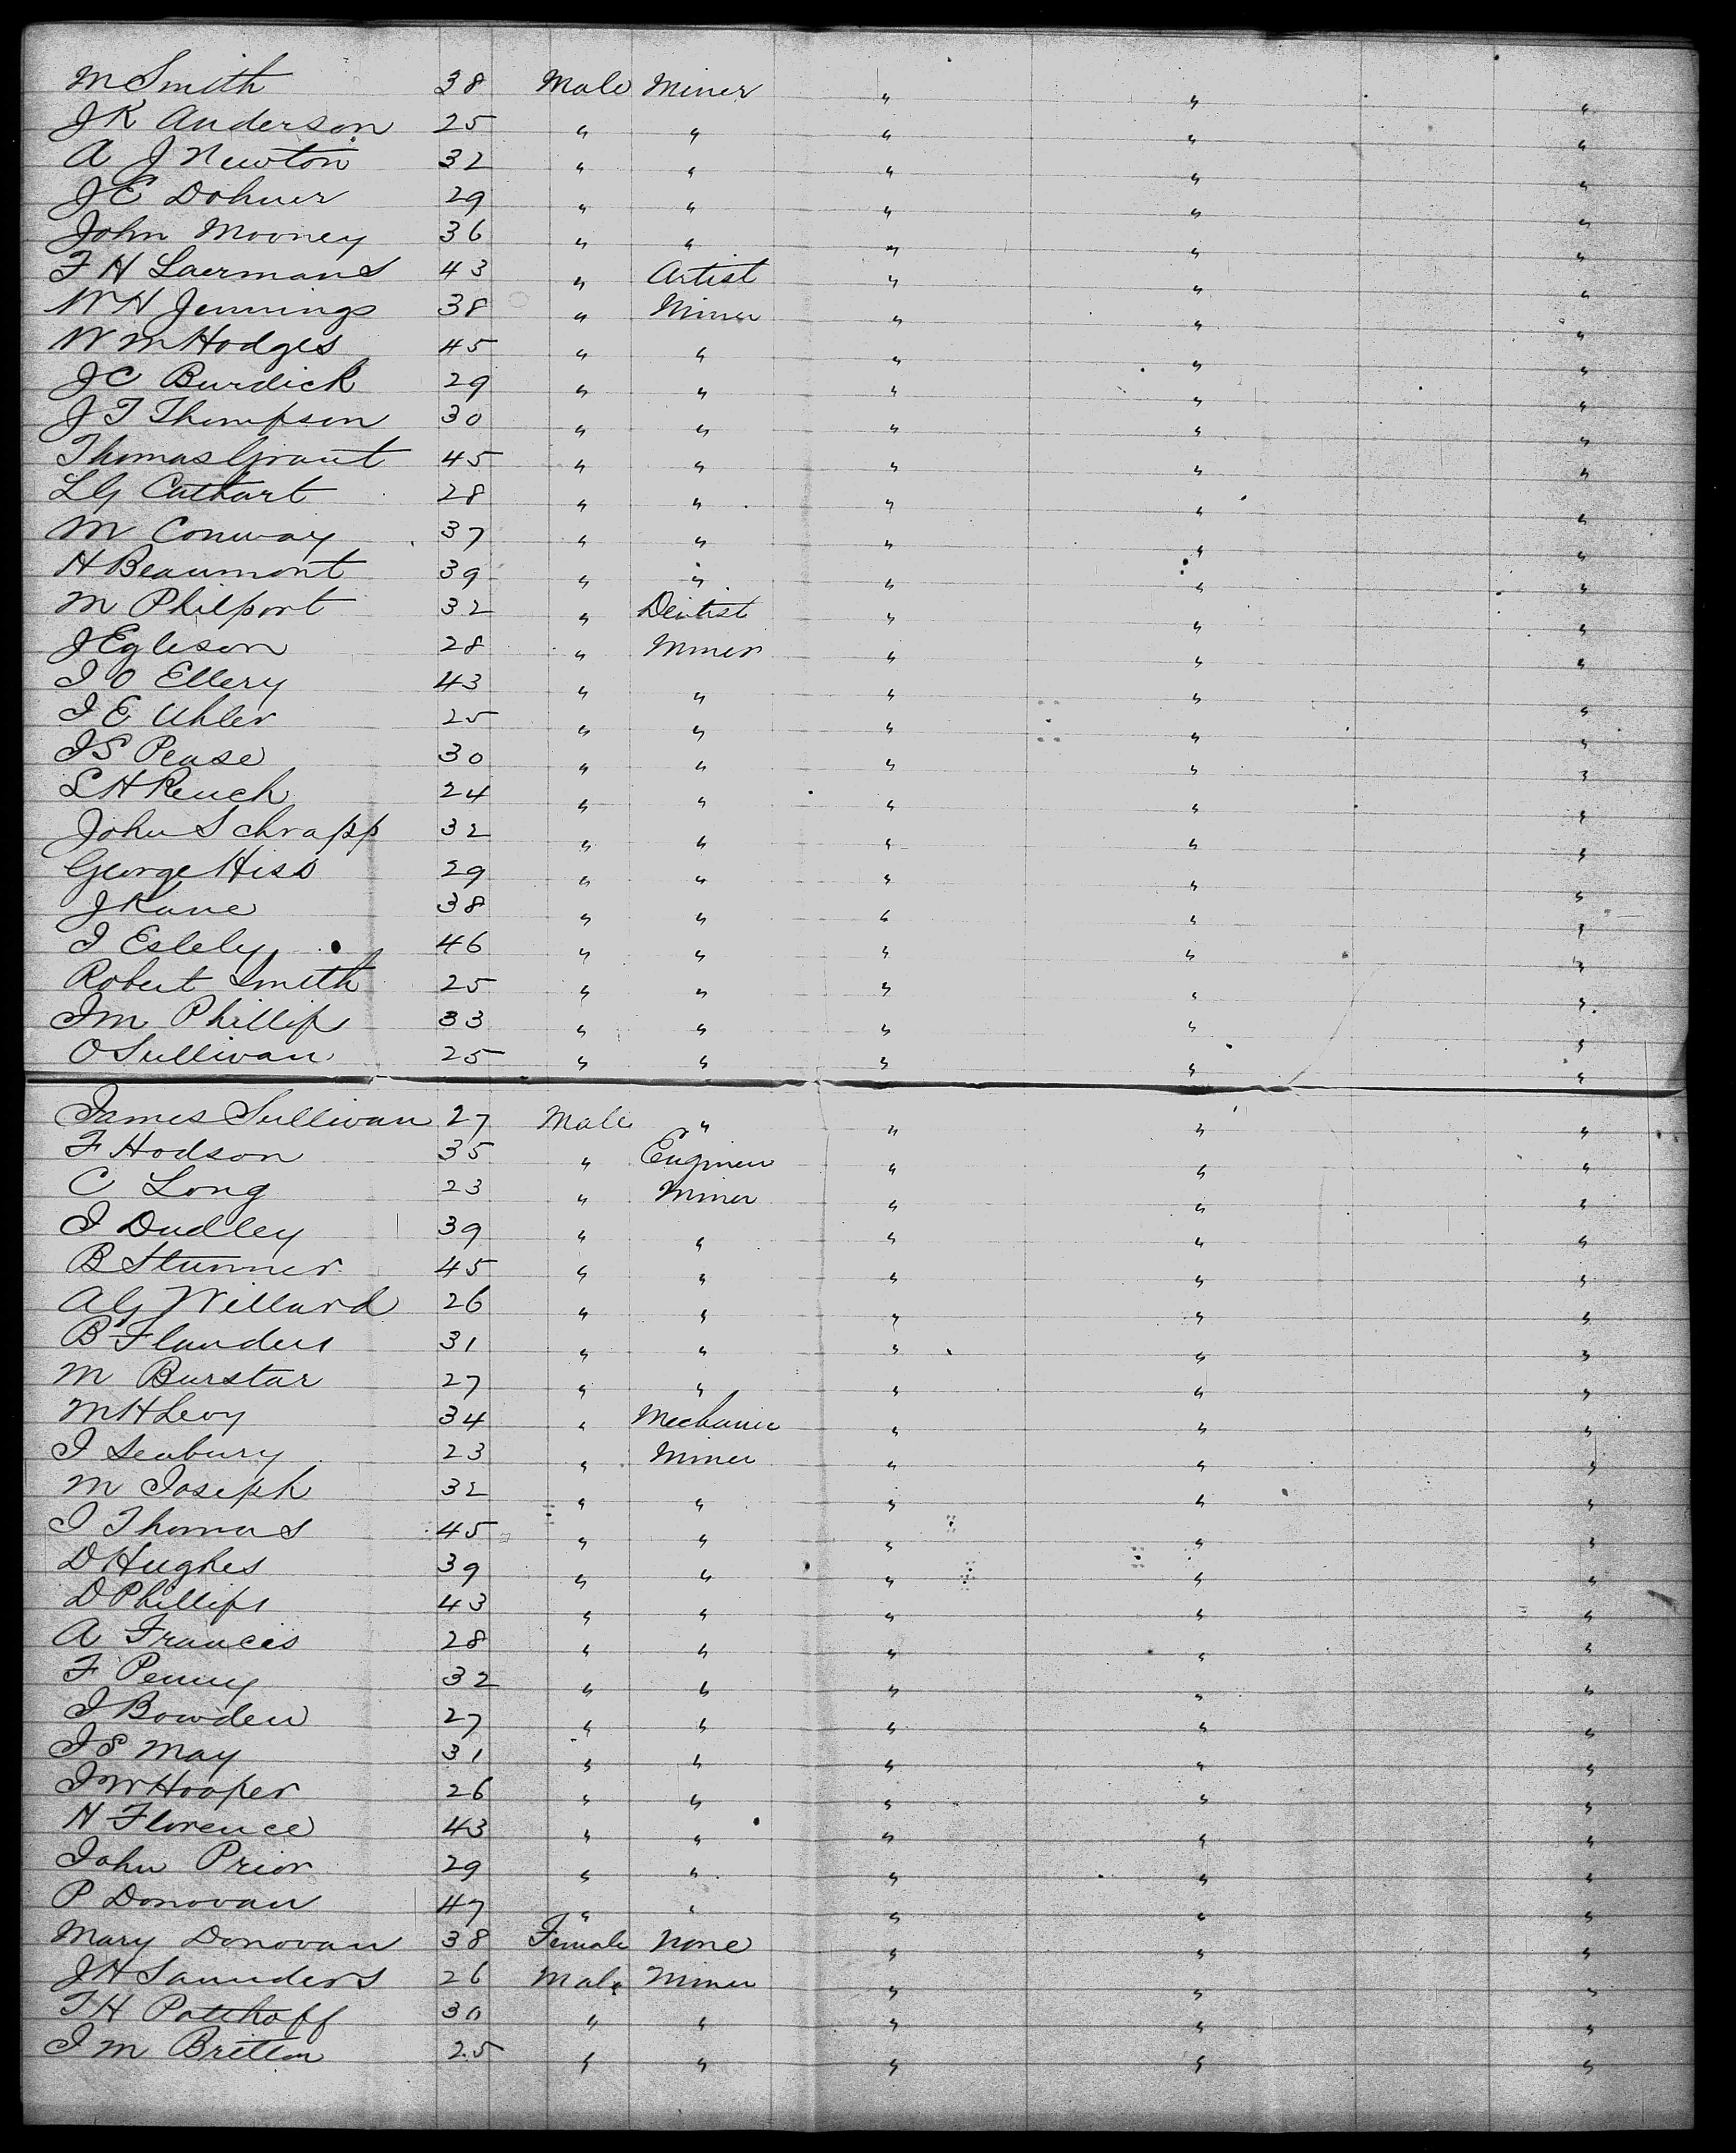 M Smith 38 Male Miner " " "
J K Anderson 25 " " " " "
A J Newton 32 " " " " "
J E Dohner 29 " " " " "
John Mooney 36 " " " " "
F H Laermans 43 " Artist " " "
W H Jennings 38 " Miner " " "
Wm Hodges 45 " " " " "
J C Burdick 29 " " " " "
J T Thompson 30 " " " " "
Thomas Grant 45 " " " " "
L G Cathart 28 " " " " "
M Conway 37 " " " " "
H Beaumont 39 " " " " "
M Philport 32 " Dentist " " "
J Egleson 28 " Miner " " "
I O Ellery 43 " " " " "
I E Uhler 25 " " " " "
I S Pease 30 " " " " "
S H Reuch 24 " " " " "
John Schrapp 32 " " " " "
George Hiss 29 " " " " "
J Kane 38 " " " " "
I Eslely 46 " " " " "
Robert Smith 25 " " " " "
I M Phillips 33 " " " " "
O Sullivan 25 " " " " "
James Sullivan 27 Male " " " "
F Hodson 35 " Engineer " " "
C Long 23 " Miner " " "
I Dudley 39 " " " " "
B Stunner 45 " " " " "
A G Willard 26 " " " " "
B Flanders 31 " " " " "
M Burstar 27 " " " " "
M H Levy 34 " Mechanic " " "
I Seabury 23 " Miner " " "
M Joseph 32 " " " " "
I Thomas 45 " " " " "
D Hughes 39 " " " " "
D Phillips 43 " " " " "
A Francis 28 " " " " "
F Penny 32 " " " " "
I Bowden 27 " " " " "
I S May 31 " " " " "
I W Hooper 26 " " " " "
N Florence 43 " " " " "
John Prior 29 " " " " "
P Donovan 47 " " " " "
Mary Donovan 38 Female None " " "
J H Saunders 26 Male Miner " " "
T H Patthoff 30 " " " " "
I M Britton 25 " " " " "